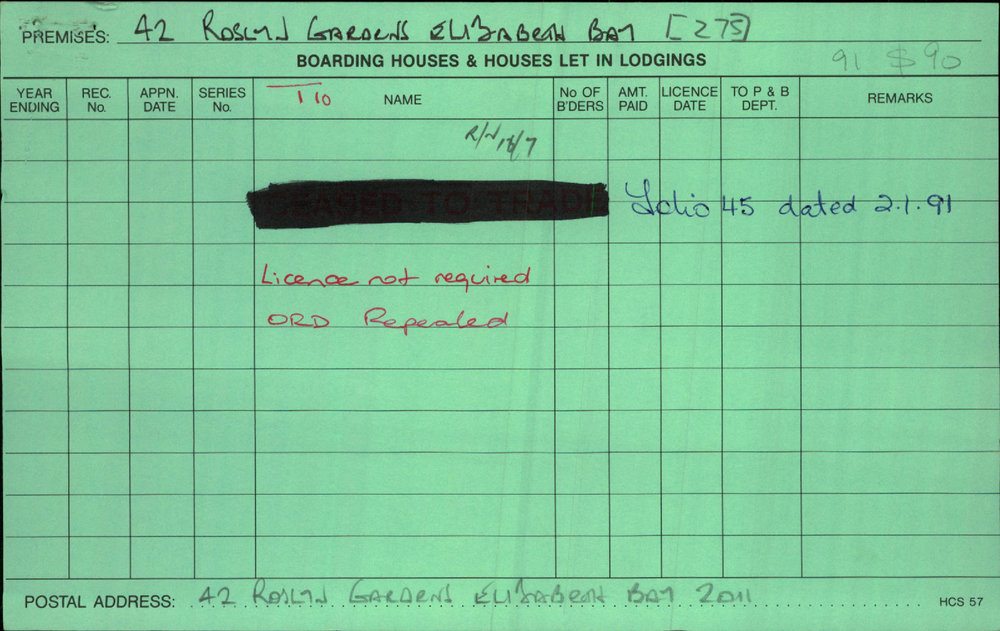 PREMISES: 42 ROSLYN GARDENS ELIZABETH BAY [275]
BOARDING HOUSES & HOUSES LET IN LODGINGS 91 $90
YEAR ENDING REC. No. APPN. DATE SERIES No. T 10 NAME No OF B'DERS AMT. PAID LICENCE DATE TO P & B DEPT. REMARKS
CEASED TO TRADE Folio 45 dated 2.1.91
Licence not required
ORD Repealed
POSTAL ADDRESS: 42 ROSLYN GARDENS ELIZABETH BAY 2011 HCS 57